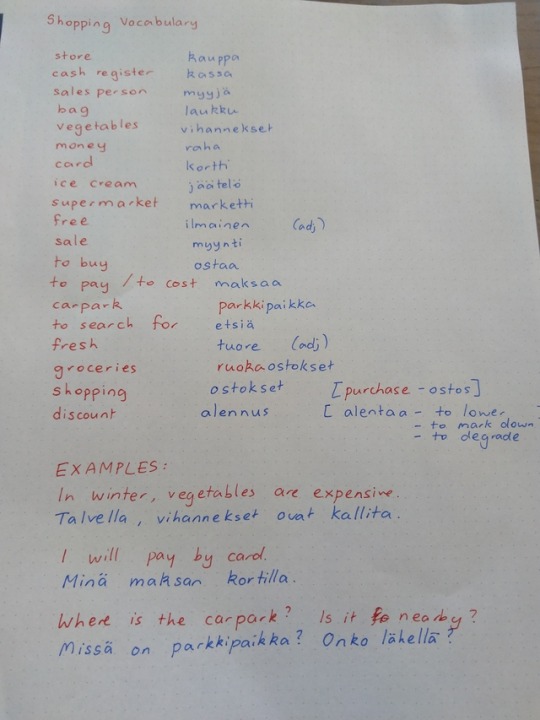 Shopping Vocabulary
store kauppa
cash register kassa
sales person myyjä
bag laukku
vegetables vihannekset
money raha
card kortti
ice cream jäätelö
supermarket marketti
free ilmainen (adj)
sale myynti
to buy ostaa
to pay / to cost maksaa
carpark parkkipaikka
to search for etsiä
fresh tuore (adj)
groceries ruokaostokset
shopping ostokset [purchase - ostos]
discount alennus [alentaa - to lower
- to mark down]
- to degrade
EXAMPLES:
In winter, vegetables are expensive.
Talvella, vihannekset ovat kallita.
I will pay by card.
Minä maksan kortilla.
Where is the carpark? Is it nearby?
Missä on parkkipaikka? Onko lähellä?